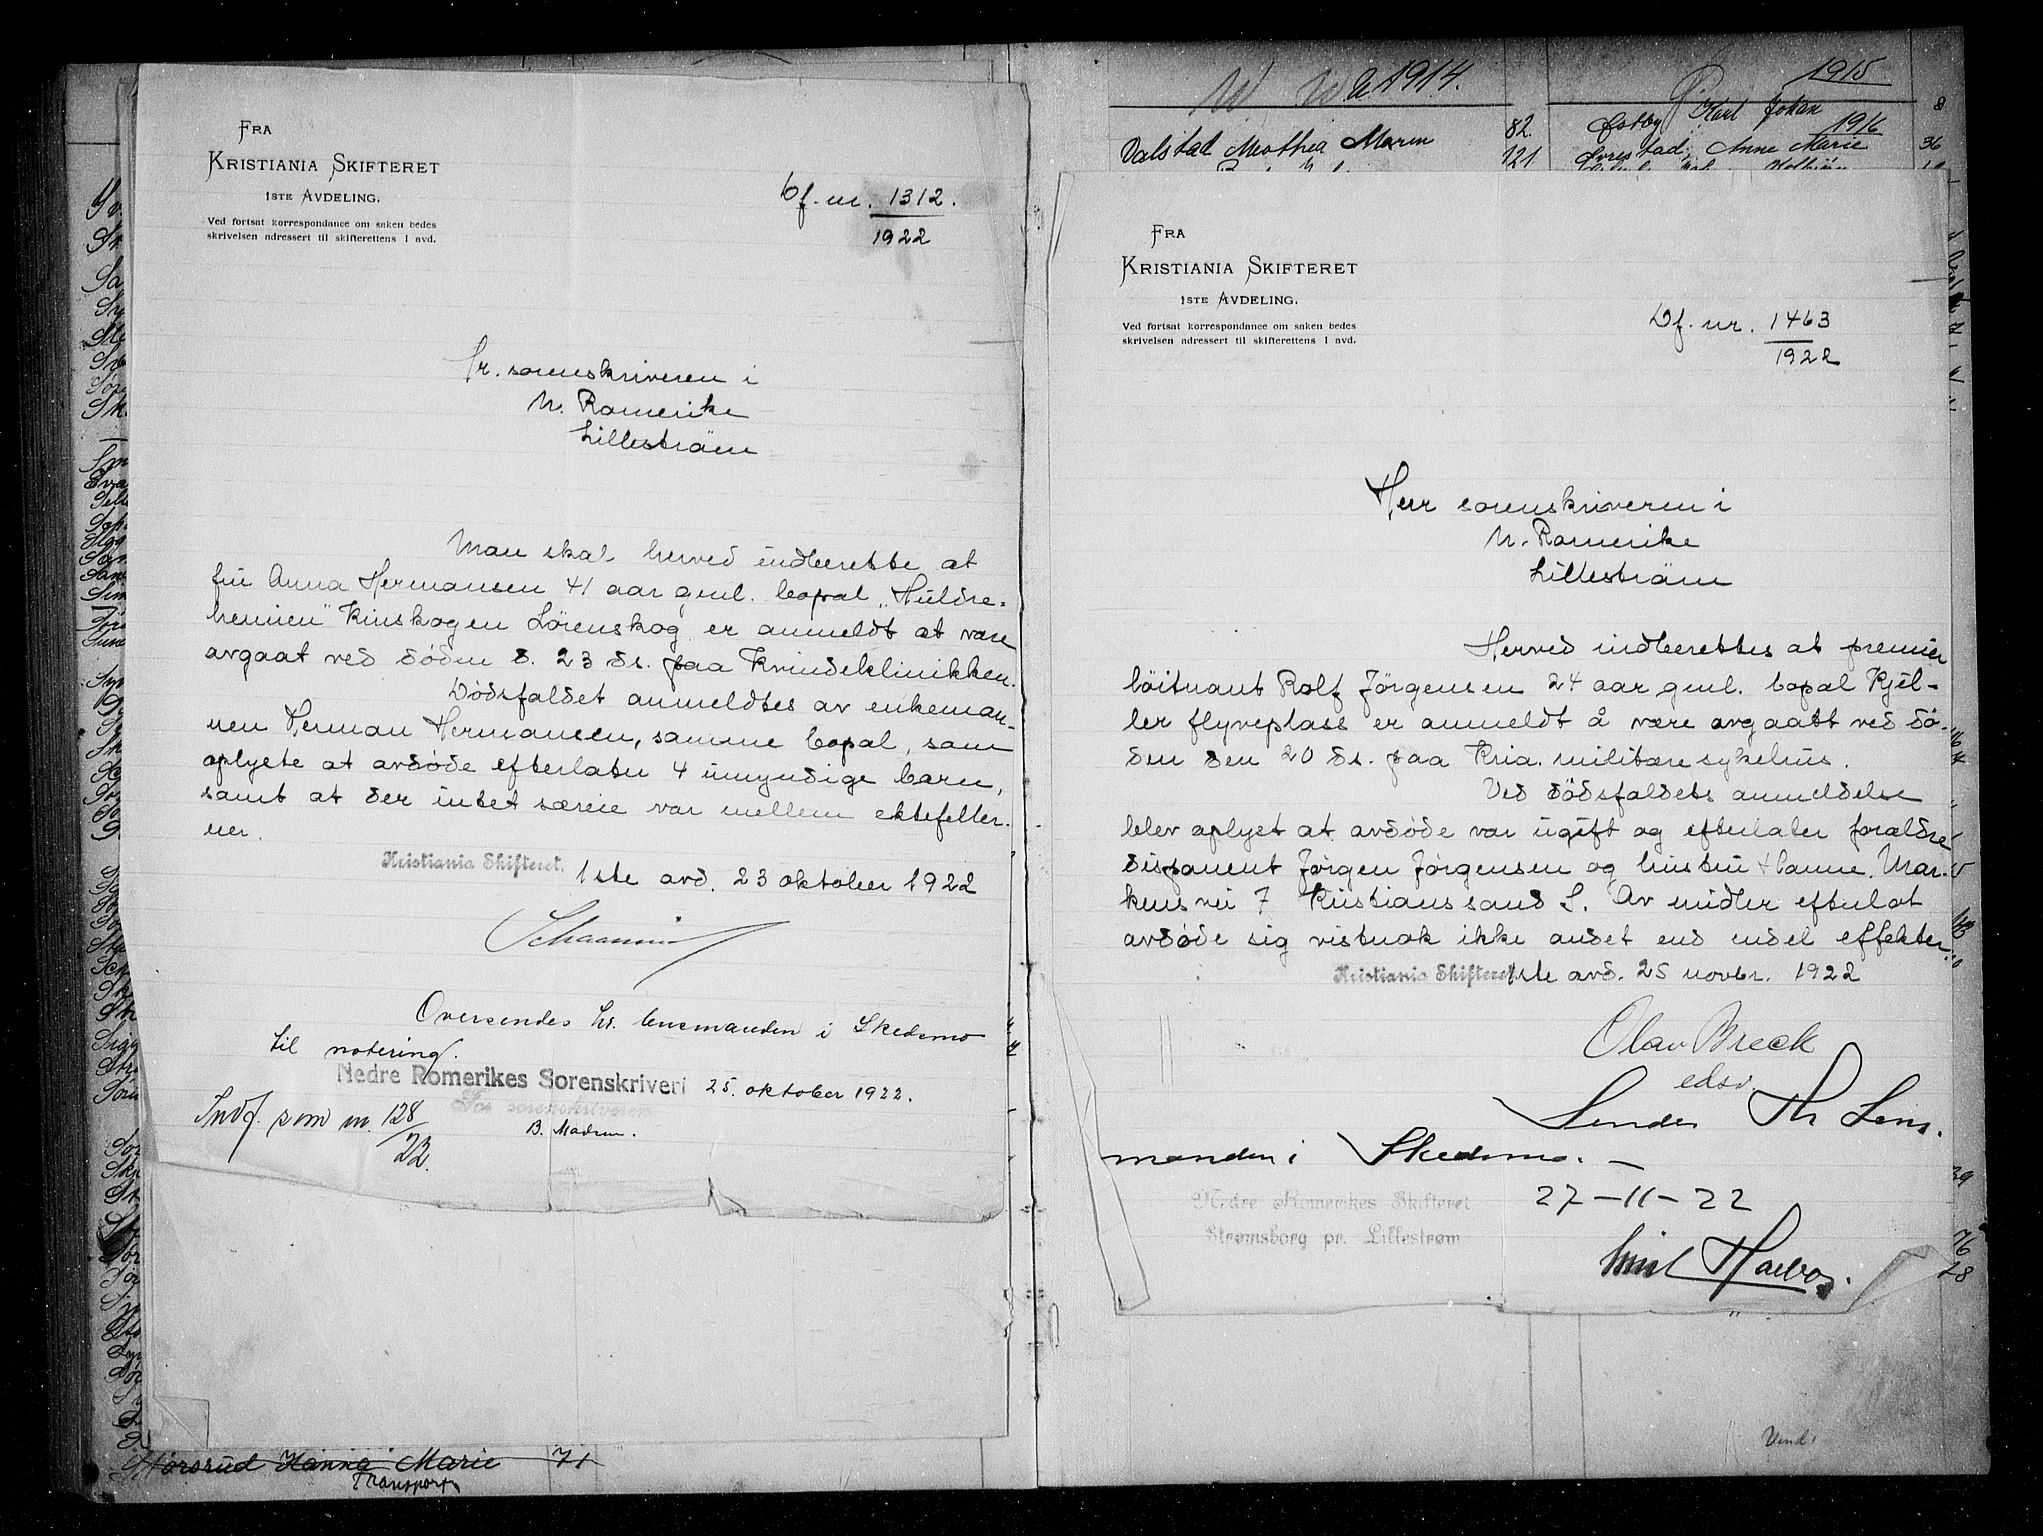 FRA
KRISTIANIA SKIFTERET
1STE AVDELING.
Ved fortsat korrespondance om saken bedes
skrivelsen adressert til skifterettens I avd.
Df. nr. 1312.
1922
Hr. sorenskriveren i
N. Romerike
Lilleström
Man skal herved indberette at
fru Anna Hermansen 41 aar gml. bopal „Huldre-
heimen" Finskogen Lörenskog er anmeldt at være
avgaat ved døden d. 23 ds. paa Kvindeklinikken.
Dødsfaldet anmeldtes av enkeman-
nen Herman Hermansen, samme bopal, som
oplyste at avdøde efterlater 4 umyndige barn,
samt at der intet særeie var mellem ektefeller-
ner.
Kristiania Skifteret. 1ste avd. 23 oktober 1922
Oversendes hr. lensmanden i Skedsmo
til notering.
Nedre Romerikes Sorenskriveri 25. oktober 1922.
For sorenskriveren
B. Madsen.
Indf. som nr. 128
22.
Størsrud Hanna Marie 71
Transport
1914.
1915
Valstad Mathea Maren 82.
121
Østby Karl Johan 8
1916
Øvrestad, Anne Marie 36
FRA
KRISTIANIA SKIFTERET
1STE AVDELING.
Ved fortsat korrespondance om saken bedes
skrivelsen adressert til skifterettens I avd.
Df. nr. 1463
1922
Herr sorenskriveren i
N. Romerike
Lilleström
Herved indberettes at premier
löitnant Rolf Jörgensen 24 aar gml. bopal Kjel-
ler flyveplass er anmeldt å være avgaatt ved dø-
den den 20 ds. paa Kria. militære sykehus.
Ved dödsfaldets anmeldelse
blev oplyst at avdøde var ugift og efterlater forældre
disponent Jørgen Jørgensen og hustru Hanne. Mar-
kens vei 7 Kristianssand S. Av midler efterlot
avdøde sig vistnok ikke andet end endel effekter.
Kristiania Skifteret 1ste avd. 25 novbr. 1922
Olav Breck
edsv.
Sendes Hr Lens-
manden i Skedsmo. —
Nedre Romerikes Skifteret
Strømsborg pr. Lillestrøm
27-11-22
Vend!